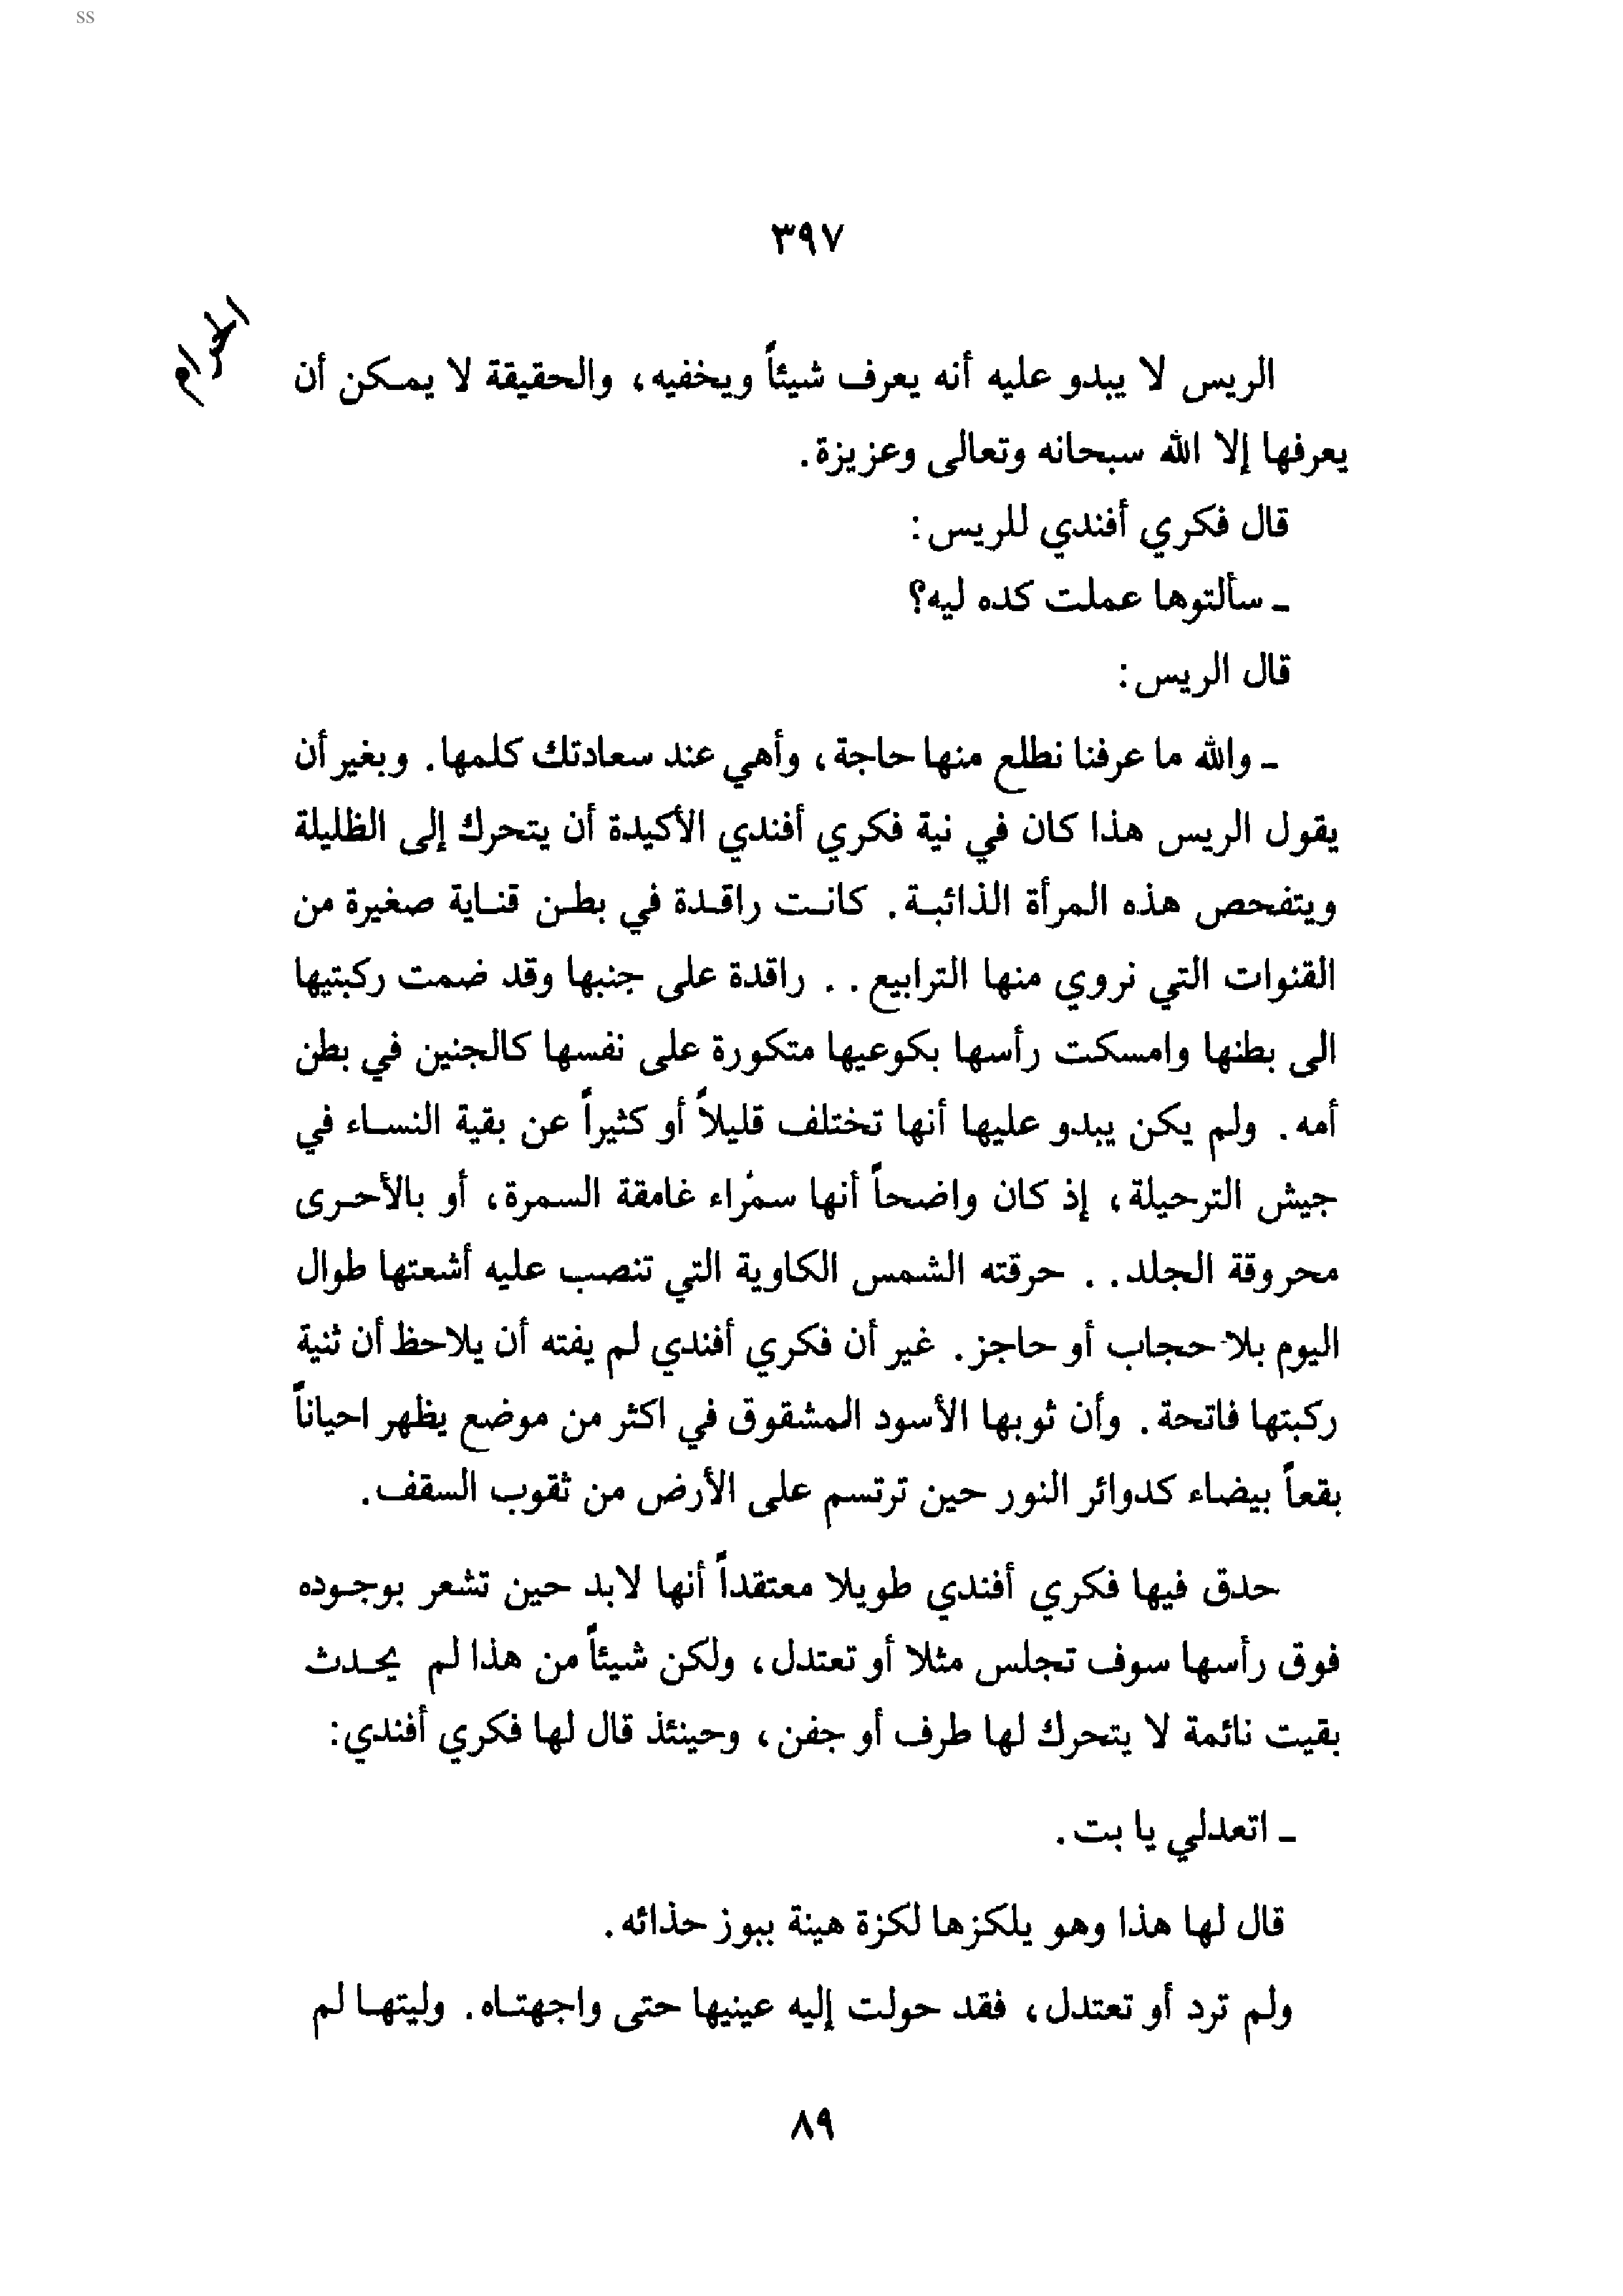 ss
٣٩٧
الحرام
الريس لا يبدو عليه أنه يعرف شيئاً ويخفيه، والحقيقة لا يمكن أن
يعرفها إلا الله سبحانه وتعالى وعزيزة.
قال فكري أفندي للريس:
ـ سألتوها عملت كده ليه؟
قال الريس:
ـ والله ما عرفنا نطلع منها حاجة، وأهي عند سعادتك كلمها. وبغير أن
يقول الريس هذا كان في نية فكري أفندي الأكيدة أن يتحرك إلى الظليلة
ويتفحص هذه المرأة الذائبة. كانت راقدة في بطن قناية صغيرة من
القنوات التي نروي منها الترابيع.. راقدة على جنبها وقد ضمت ركبتيها
الى بطنها وامسكت رأسها بكوعيها متكورة على نفسها كالجنين في بطن
أمه. ولم يكن يبدو عليها أنها تختلف قليلاً أو كثيراً عن بقية النساء في
جيش الترحيلة، إذ كان واضحاً أنها سمراء غامقة السمرة، أو بالأحرى
محروقة الجلد.. حرقته الشمس الكاوية التي تنصب عليه أشعتها طوال
اليوم بلا حجاب أو حاجز. غير أن فكري أفندي لم يفته أن يلاحظ أن ثنية
ركبتها فاتحة. وأن ثوبها الأسود المشقوق في اكثر من موضع يظهر احياناً
بقعاً بيضاء كدوائر النور حين ترتسم على الأرض من ثقوب السقف.
حدق فيها فكري أفندي طويلا معتقداً أنها لابد حين تشعر بوجوده
فوق رأسها سوف تجلس مثلا أو تعتدل، ولكن شيئاً من هذا لم يحدث
بقيت نائمة لا يتحرك لها طرف أو جفن، وحينئذ قال لها فكري أفندي:
ـ اتعدلي يا بت.
قال لها هذا وهو يلكزها لكزة هينة ببوز حذائه.
ولم ترد أو تعتدل، فقد حولت إليه عينيها حتى واجهتاه. وليتها لم
٨٩